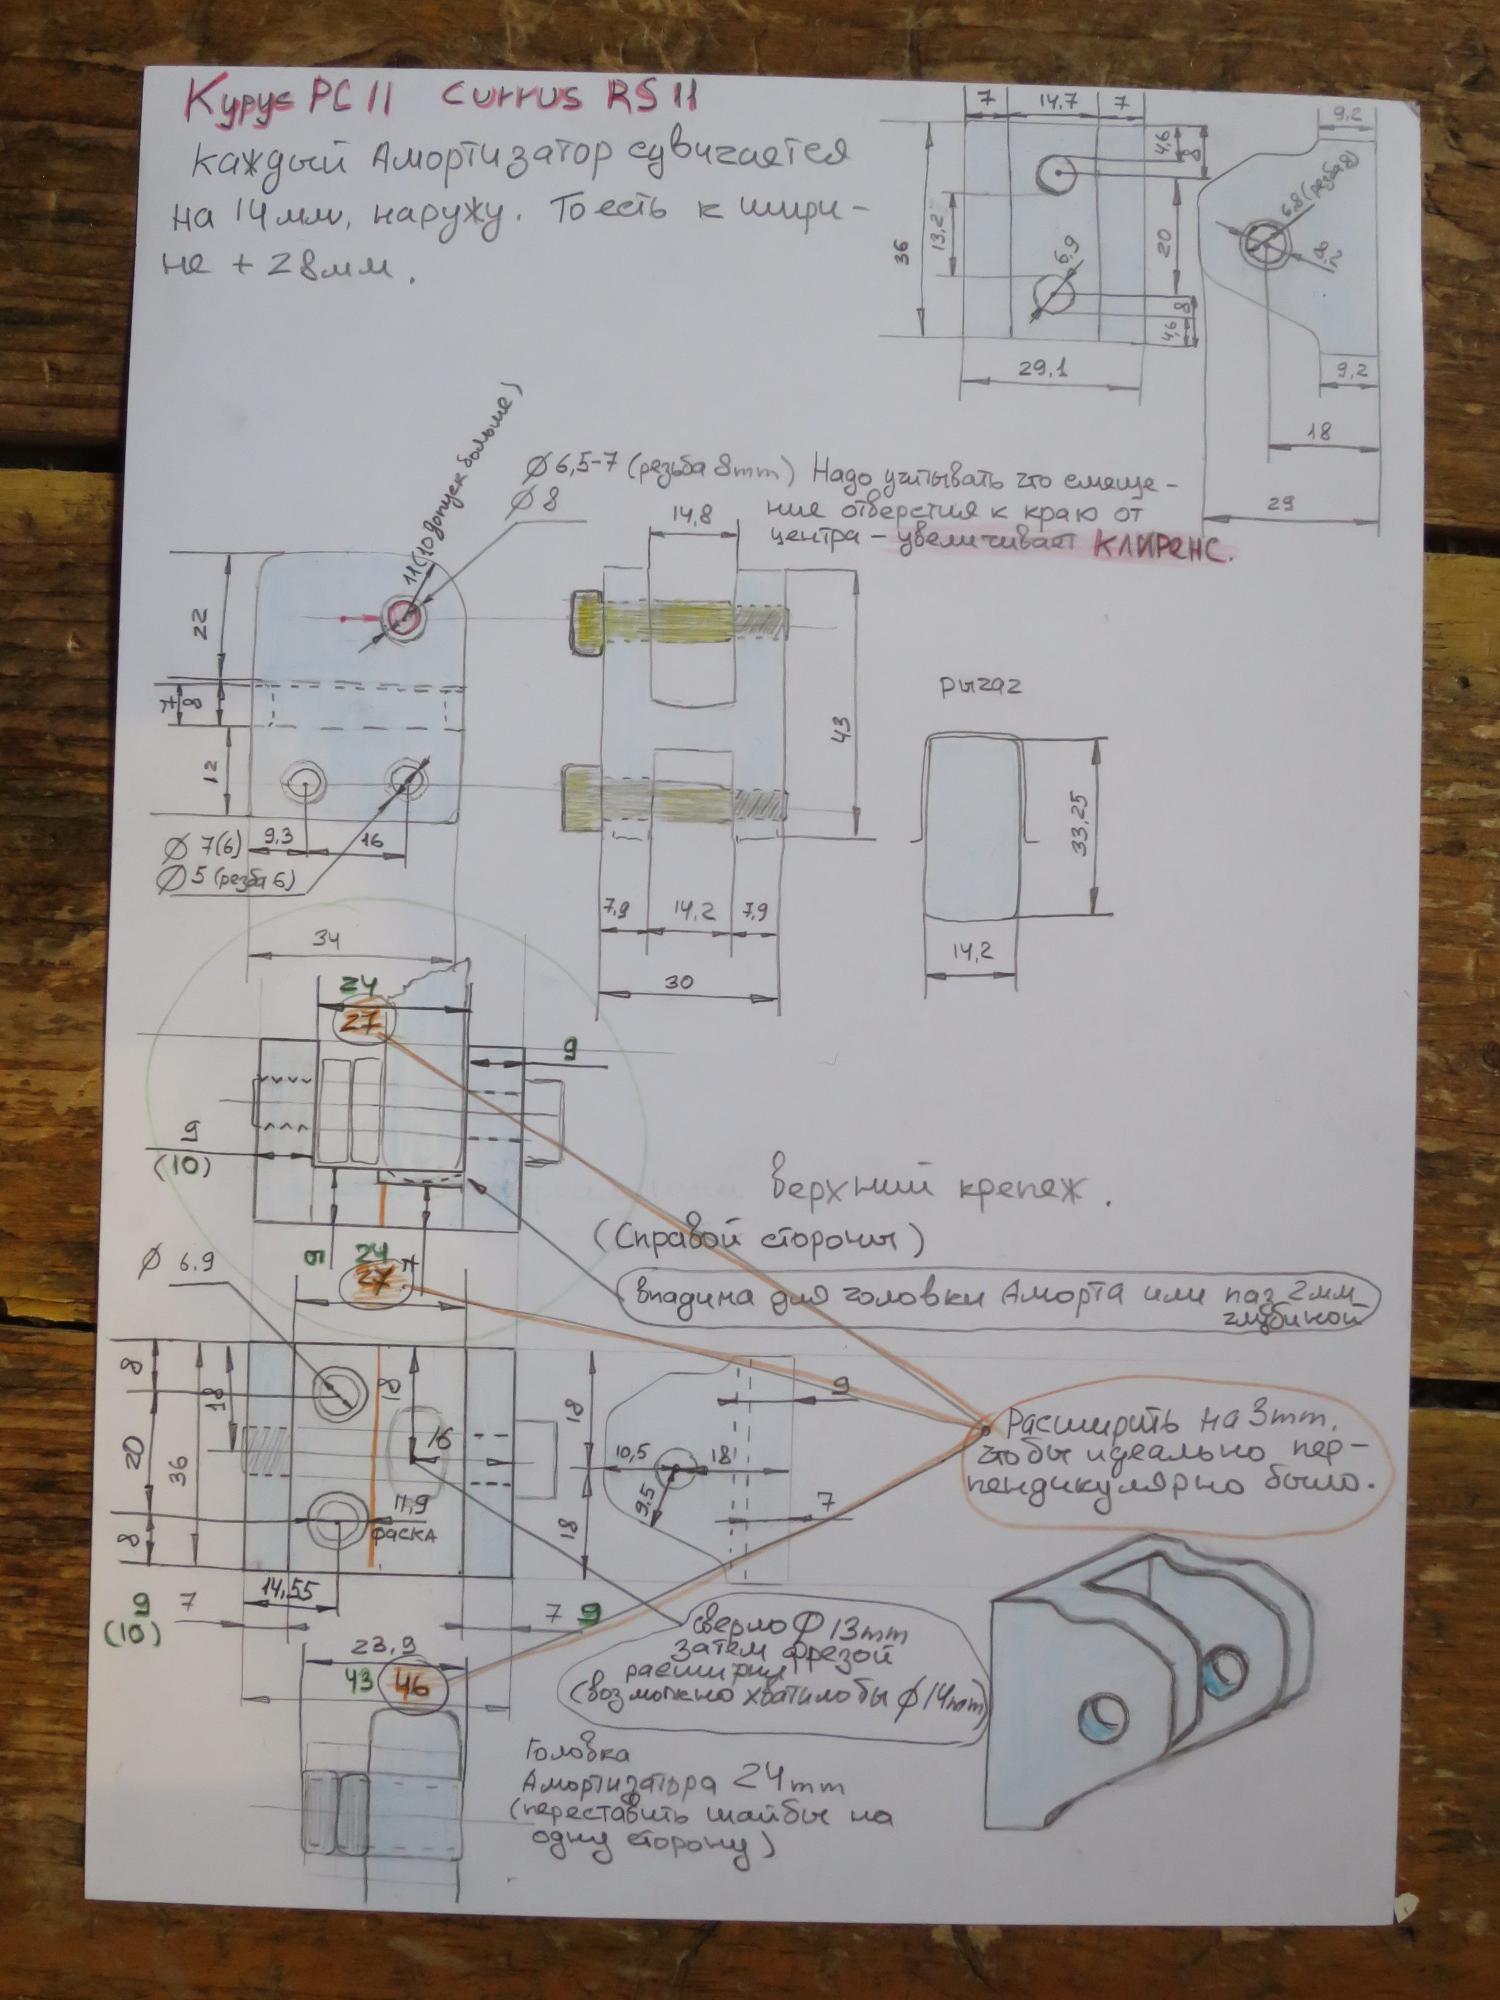 Курус РС 11 Currus RS 11
Каждый Амортизатор сдвигается
на 14мм, наружу. То есть к шири-
не + 28мм.
7 14,7 7
9,2
4,6
8
36
13,2
6,9
20
8
4,6
29,1
6,8 (резьба 8)
9,2
18
29
11 (10 допуск больше)
Ø 6,5-7 (резьба 8mm)
Ø 8
Надо учитывать что смеще-
ние отверстия к краю от
центра - увеличивает КЛИРЕНС.
14,8
22
7
8
12
43
рычаг
33,25
14,2
Ø 7(6)
Ø 5 (резба 6)
9,3
16
34
7,9
14,2
7,9
30
24
27
9
9
(10)
верхний крепеж.
(Справой стороны)
впадина для головки Аморта или паз 2мм
глубиной
9
24
27
7
Ø 6.9
8
18
20
36
8
18
16
11,9
фаска
18
18
9
10,5
18
9.5
7
Расширить на 3mm.
чтобы идеально пер-
пендикулярно было.
14,55
9
(10)
7
7 9
23,9
43
46
сверло Ф 13mm
затем фрезой
расширил
(возможно хватило бы Ф 14mm)
Головка
Амортизатора 24mm
(переставить шайбы на
одну сторону)